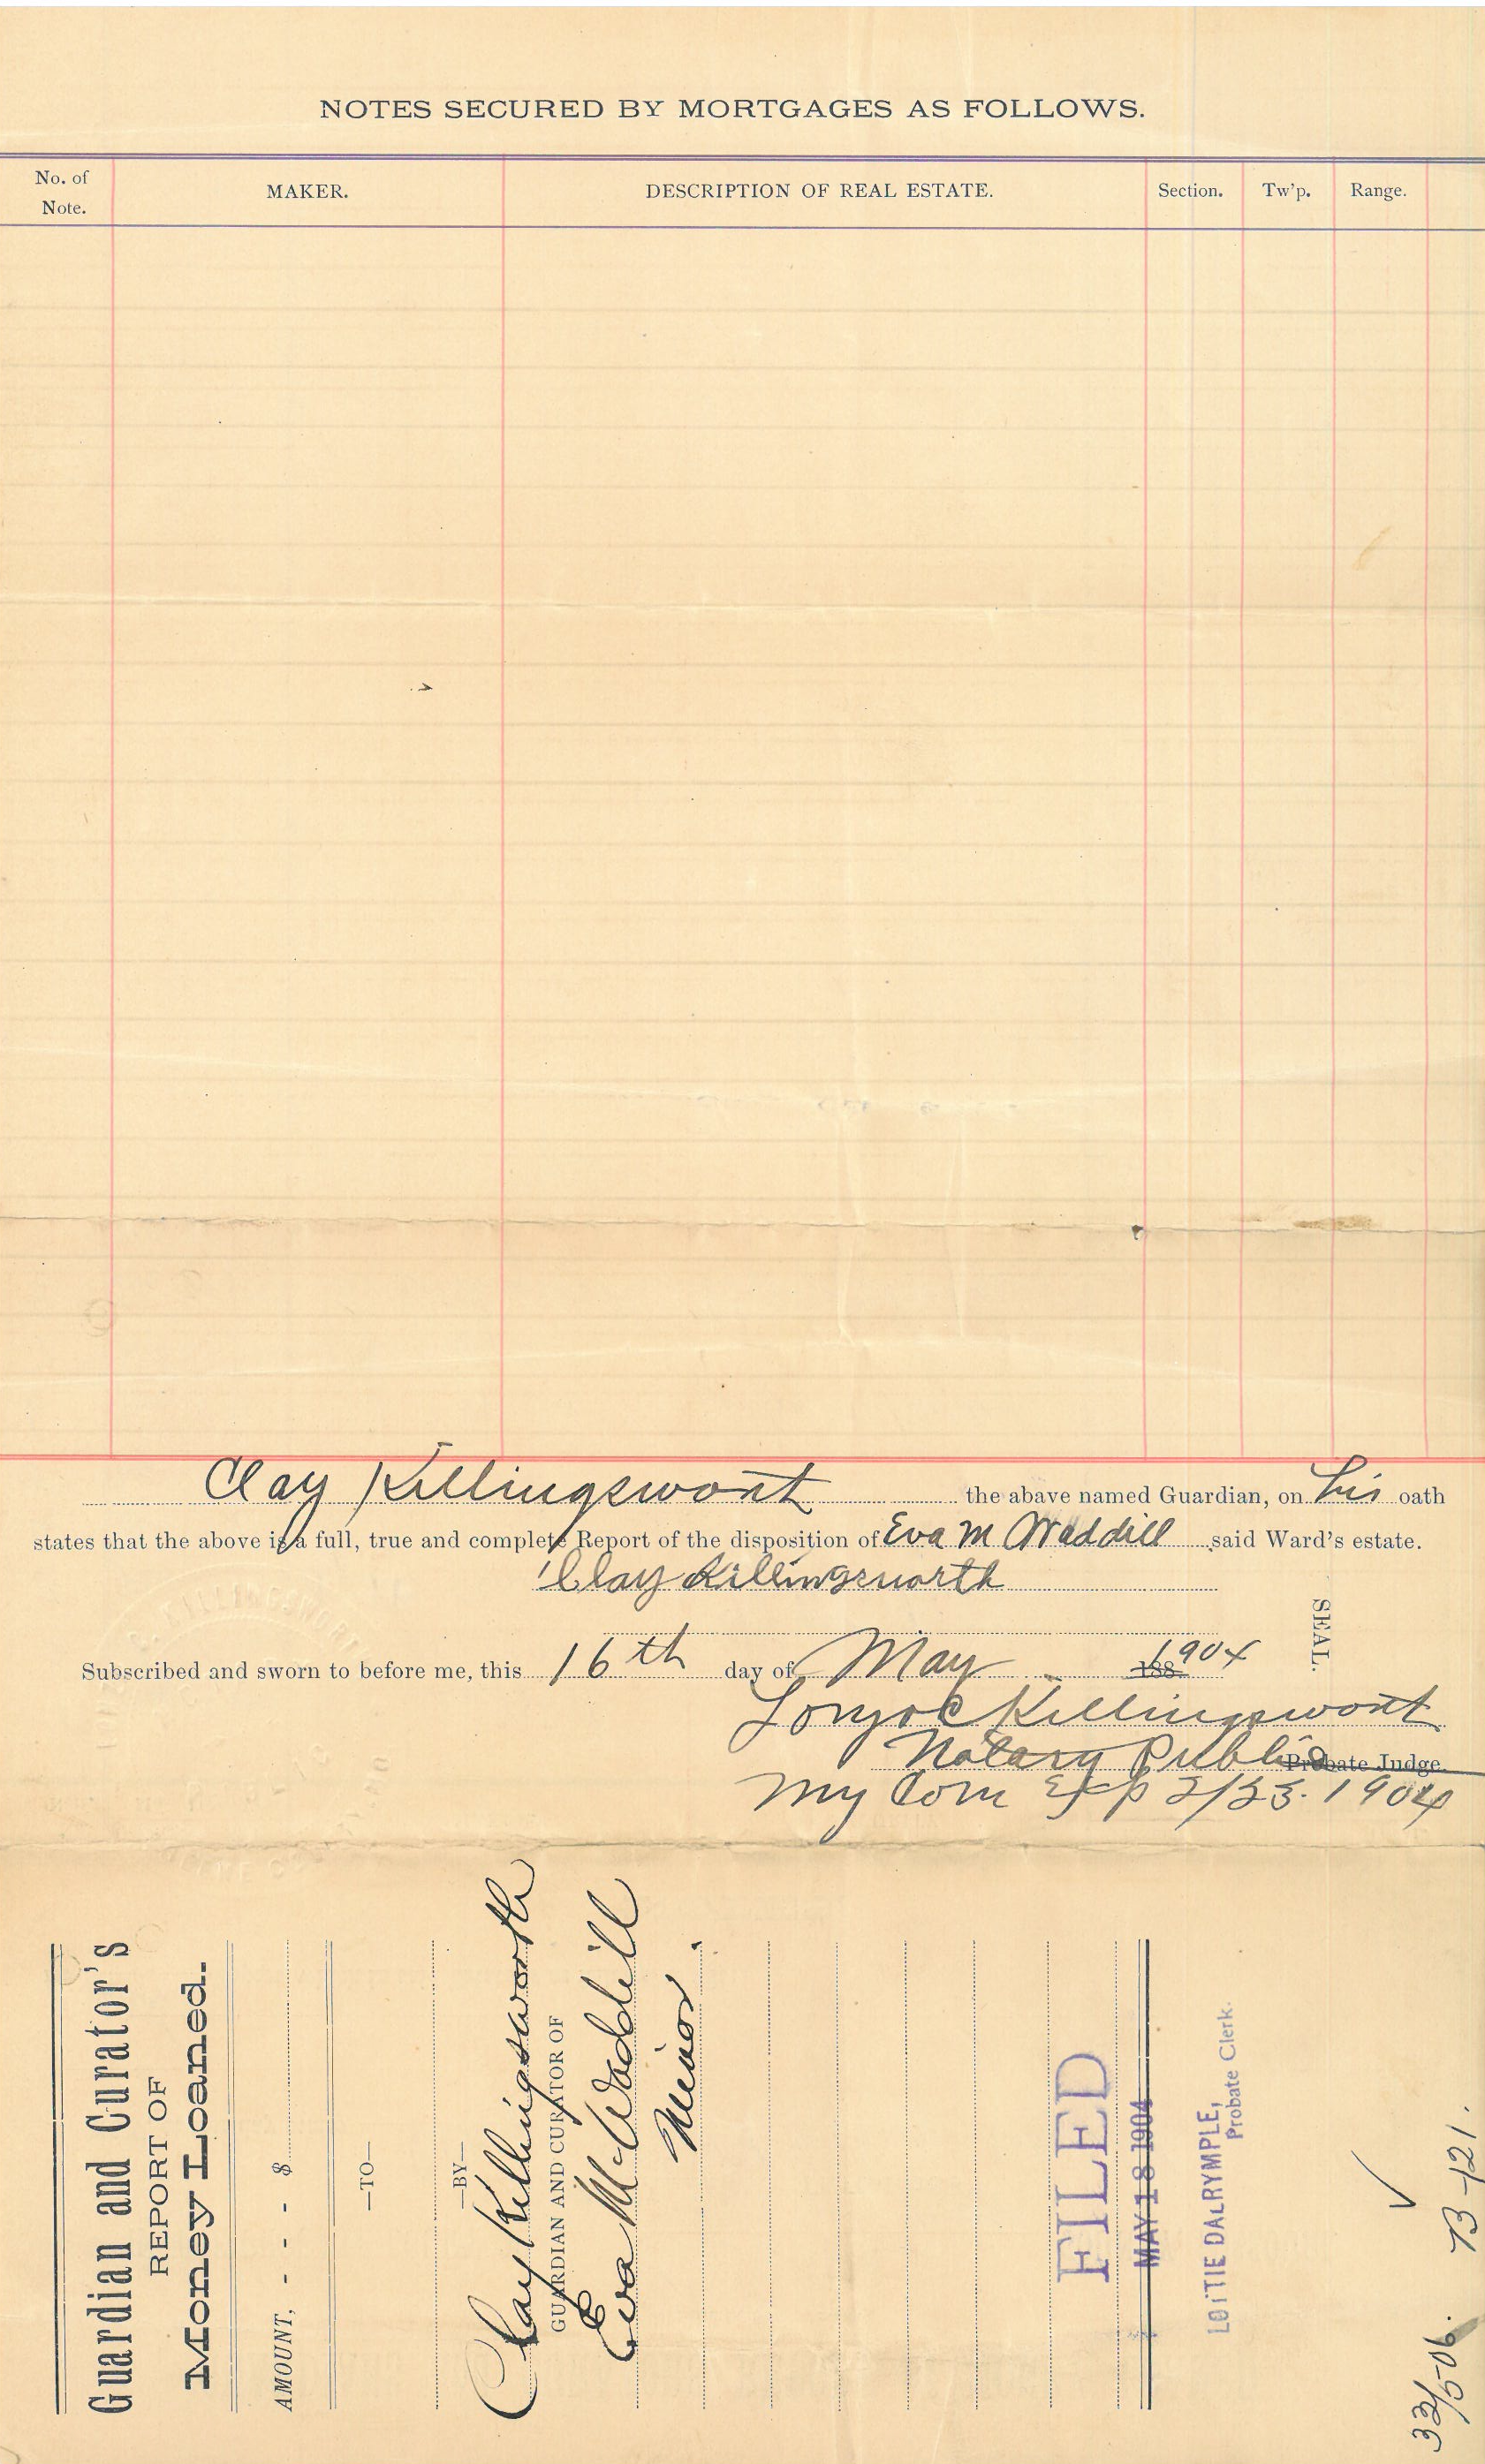 NOTES SECURED BY MORTGAGES AS FOLLOWS.
No. of Note. MAKER. DESCRIPTION OF REAL ESTATE. Section. Tw'p. Range.
Clay Killingswort the abave named Guardian, on his oath
states that the above is a full, true and complete Report of the disposition of Eva M Waddill said Ward's estate.
Clay Killingsworth
SEAL.
Subscribed and sworn to before me, this 16th day of May 188 1904
Killingswort
Notary Public Probate Judge.
My Com Exp 1904
Guardian and Curator's
REPORT OF
Money Loaned.
AMOUNT, - - - $
—TO—
—BY—
Clay Killingsworth
GUARDIAN AND CURATOR OF
Eva M. Waddill
Minor.
FILED
MAY 18 1904
LOTTIE DALRYMPLE,
Probate Clerk.